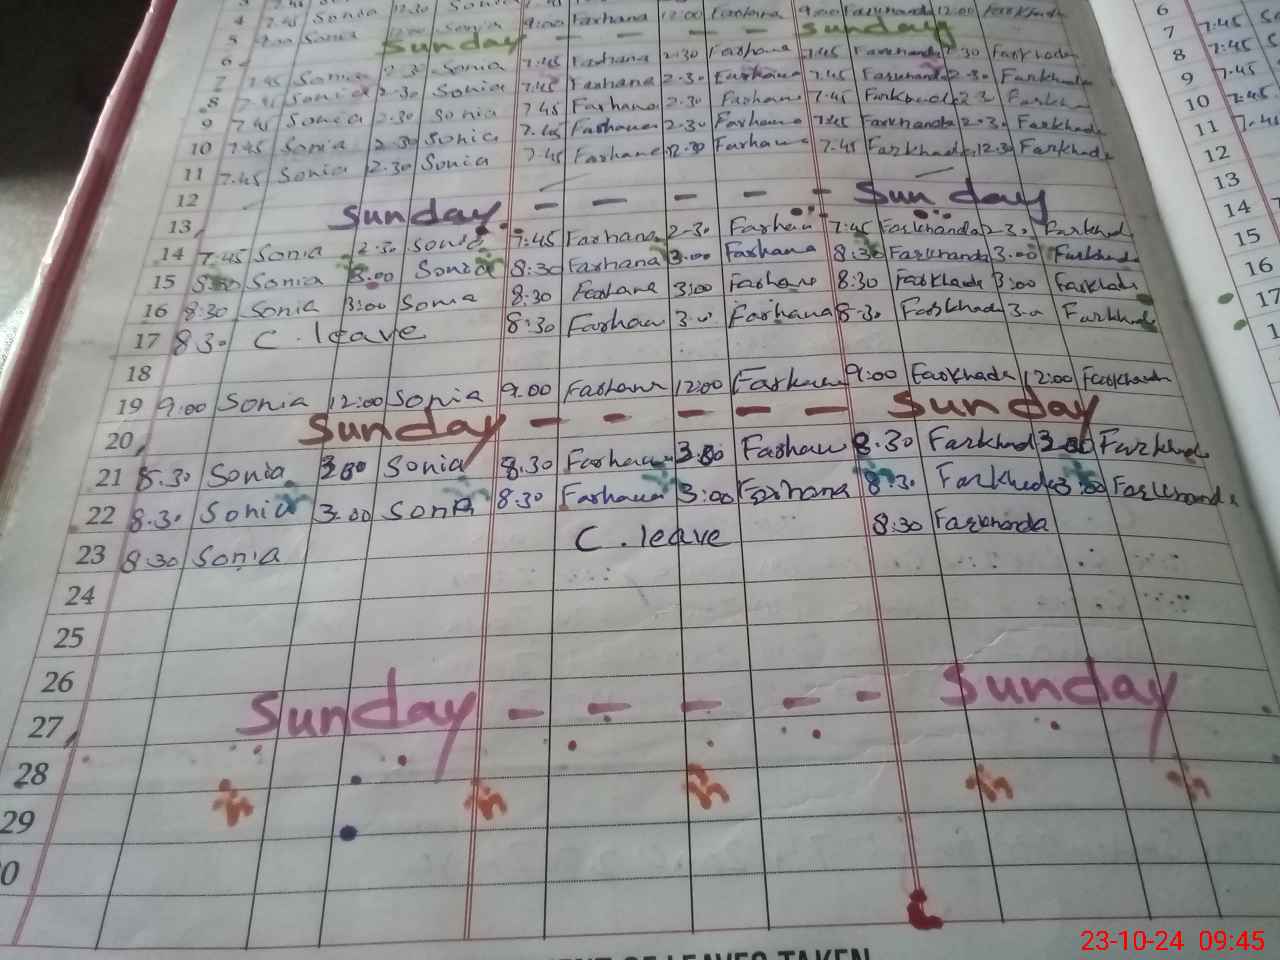 4 7.45 Sonia 12.30 Sonia 9:00 Farhana 12:00 Farhana 9.00 Farkhanda 12:00 Farkhada
5 Sunday - - - - - Sunday
6 7:45 Farhana 2:30 Farhana 7:45 Farkhanda 2.30 Farkhada
7 7.45 Sonia 2.30 Sonia 7:45 Farhana 2.30 Farhana 7:45 Farkhanda 2.30 Farkhada
8 7.45 Sonia 2.30 Sonia 7.45 Farhana 2.30 Farhana 7.45 Farkhada
9 7.45 Sonia 2.30 Sonia 7.45 Farhana 2.30 Farhana 7.45 Farkhanda 2.30 Farkhada
10 7.45 Sonia 2.30 Sonia 7.45 Farhana 12.30 Farhana 7.45 Farkhada 12.30 Farkhada
11 7.45 Sonia 2.30 Sonia
12
13 Sunday - - - - - Sunday
14 7.45 Sonia 2.30 Sonia 7:45 Farhana 2.30 Farhan 7:45 Farkhanda 2.30 Farkhad
15 8:30 Sonia 3:00 Sonia 8:30 Farhana 3:00 Farhana 8:30 Farkhanda 3:00 Farkhada
16 8:30 Sonia 3:00 Sonia 8:30 Farhana 3:00 Farhana 8:30 Farkhada 3:00 Farkhada
17 8.30 C. leave 8:30 Farhan 3.0 Farhana 8.30 Farkhad 3.0 Farkhad
18
19 9:00 Sonia 12:00 Sonia 9.00 Farhana 12:00 Farhan 9:00 Farkhada 12:00 Farkhanda
20 Sunday - - - - - Sunday
21 8.30 Sonia 3.00 Sonia 8.30 Farhan 3.00 Farhan 8.30 Farkhad 3.00 Farkhad
22 8.30 Sonia 3.00 Sonia 8:30 Farhana 3:00 Farhana 8:30 Farkhada 3:00 Farkhanda
23 8:30 Sonia C. leave 8:30 Farkhanda
24
25
26
27 Sunday - - - - - Sunday
28
29
0
6
7 7:45
8 7:45
9 7:45
10 7:45
11 7.45
12
13
14
15
16
17
OF LEAVES TAKEN
23-10-24 09:45